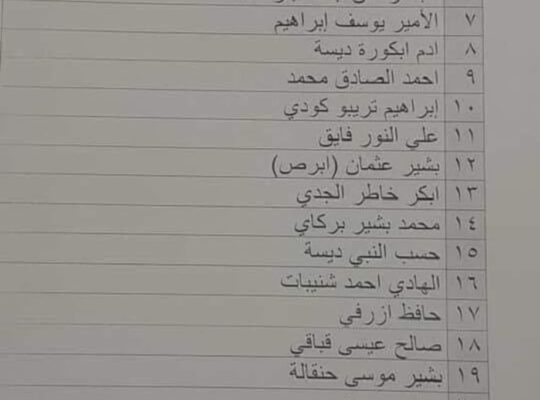 ٧ الأمير يوسف إبراهيم
٨ ادم ابكورة ديسة
٩ احمد الصادق محمد
١٠ إبراهيم تريبو كودي
١١ علي النور فايق
١٢ بشير عثمان (ابرص)
١٣ ابكر خاطر الجدي
١٤ محمد بشير بركاي
١٥ حسب النبي ديسة
١٦ الهادي احمد شنيبات
١٧ حافظ ازرفي
١٨ صالح عيسى قباقي
١٩ بشير موسى حنقالة